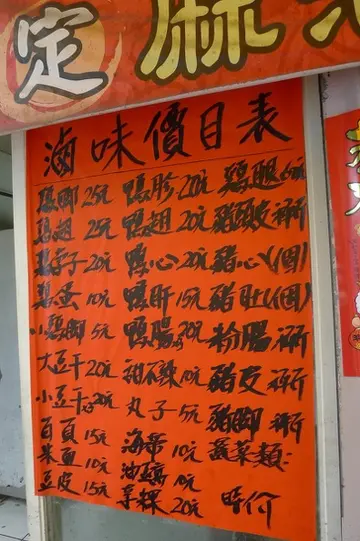 定 麻
滷味價目表
雞脚 25元 鴨胗 20元 雞腿 60元
雞翅 25元 鴨翅 20元 豬頭皮 秤斤
雞脖子 20元 鴨心 20元 豬心(個)
雞蛋 10元 鴨肝 15元 豬肚(個)
小雞脚 5元 鴨腸 30元 粉腸 秤斤
大豆干 20元 甜不辣 10元 豬皮 秤斤
小豆干 20元 丸子 5元 豬脚 秤斤
百頁 15元 海帶 10元 蔬菜類:
米血 10元 油豆腐 10元
豆皮 15元 拿粿 20元 時价